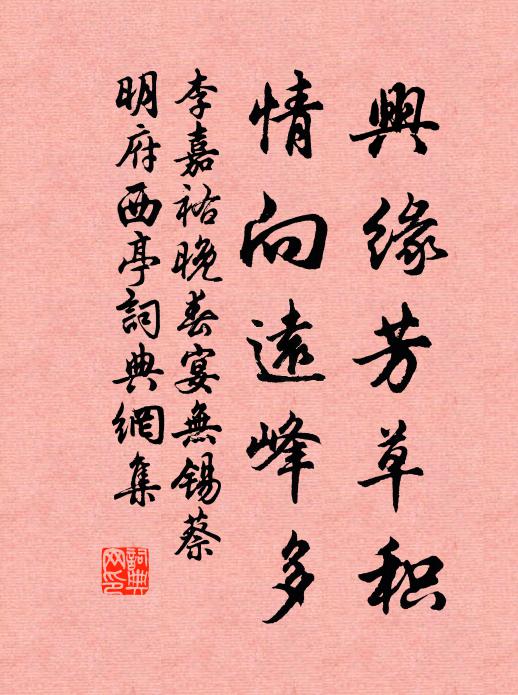 興緣芳草积
情向遠峰多
李嘉祐晚春宴無錫蔡
明府西亭詞典網集
詞典
网印